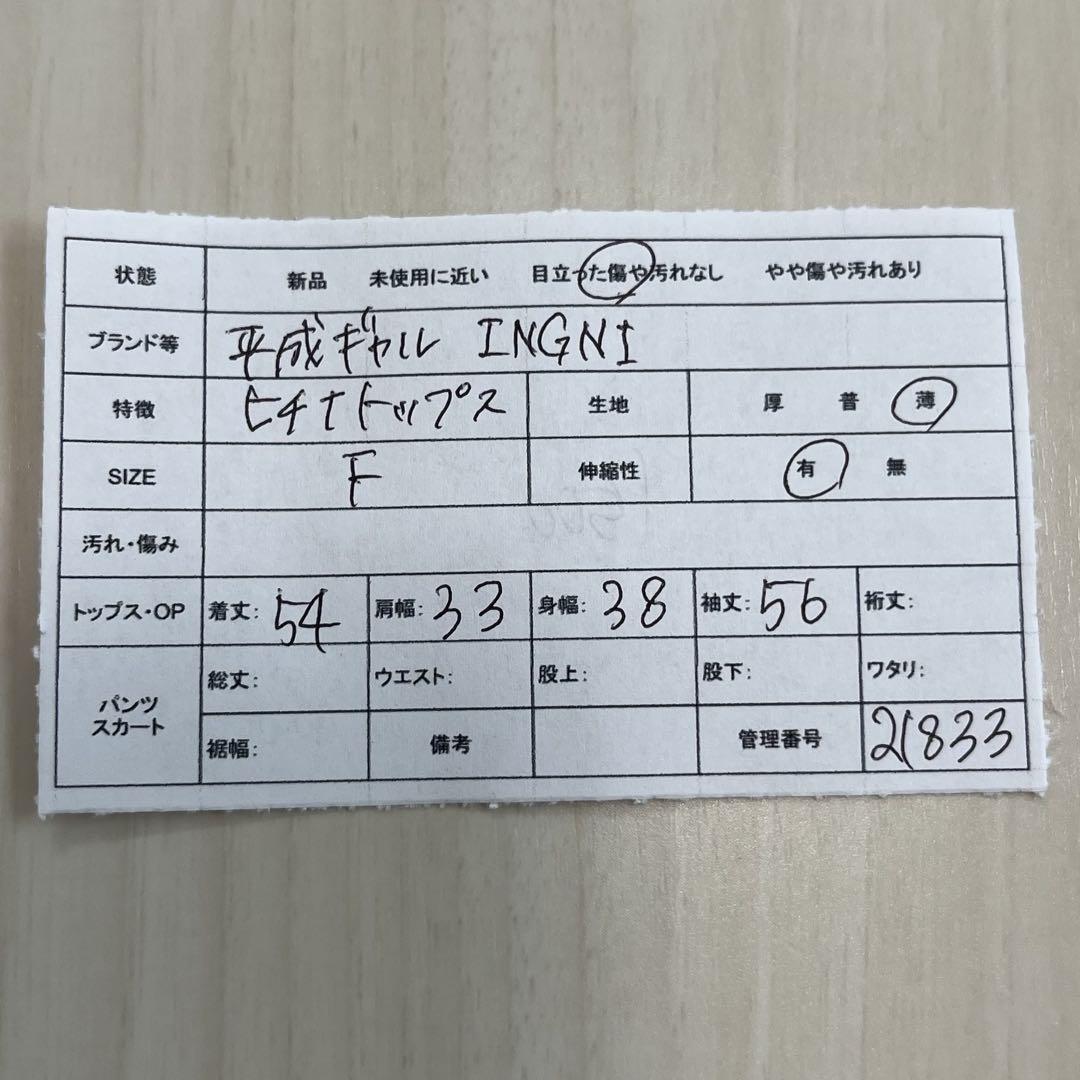 状態 新品 未使用に近い 目立った傷や汚れなし やや傷や汚れあり
ブランド等 平成ギャル INGNI
特徴 ヒチナトップス 生地 厚 普 薄
SIZE F 伸縮性 有 無
汚れ・傷み
トップス・OP 着丈: 54 肩幅: 33 身幅: 38 袖丈: 56 裄丈:
パンツ
スカート
総丈: ウエスト: 股上: 股下: ワタリ:
裾幅: 備考 管理番号 21833